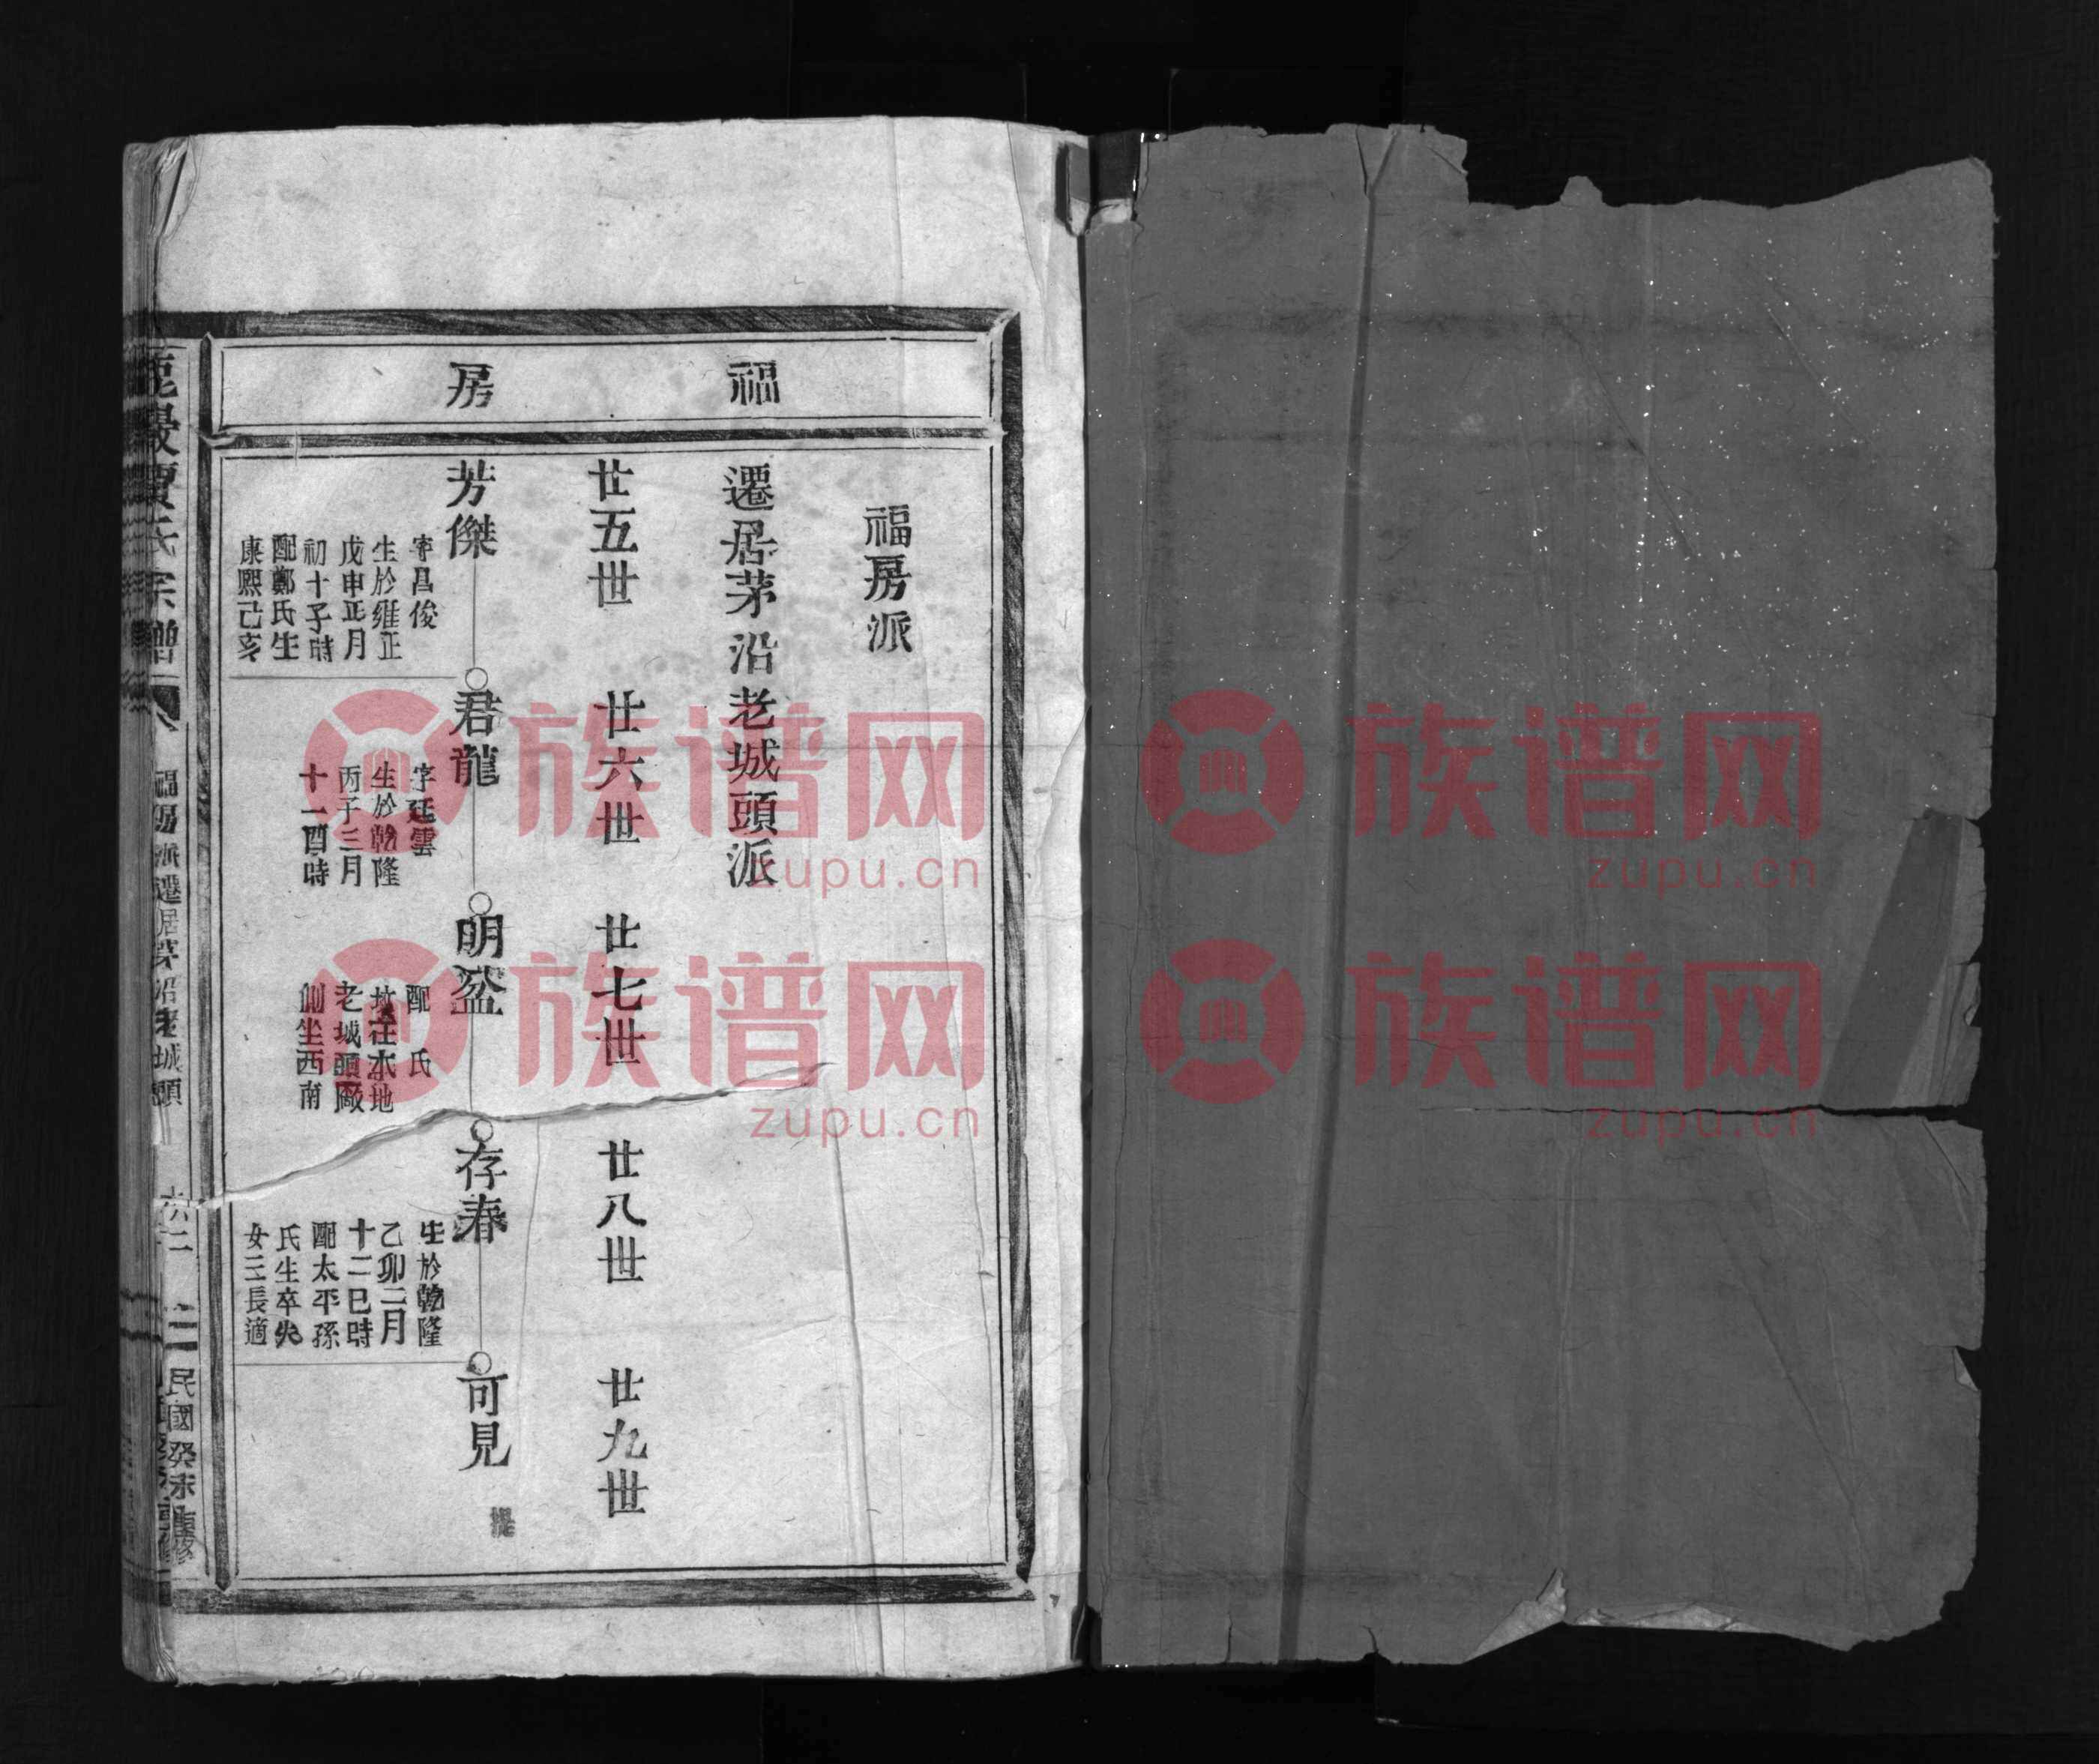 福房
福房派
遷居茅沿老城頭派
廿五世
廿六世
廿七世
廿八世
廿九世
芳傑
字昌俊
生於雍正
戊申正月
初十子時
配鄭氏生
康熙己亥
君龍
字廷雲
生於乾隆
丙子三月
十一酉時
明盔
配 氏
坟在水地
老城頭廠
側坐西南
存春
生於乾隆
乙卯二月
十二巳時
配太平孫
氏生卒失
女三長適
可見
氏宗譜
福房派遷居茅沿老城頭
六二
民國癸未重修
族谱网
zupu.cn
族谱网
zupu.cn
族谱网
zupu.cn
族谱网
zupu.cn